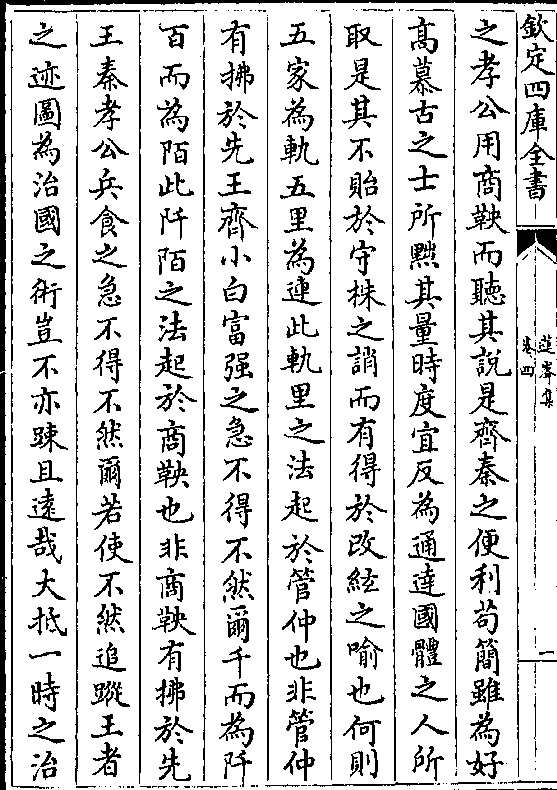 欽定四庫全書
蓮峯集
卷四
一
之孝公用商鞅而聽其說是齊秦之便利苟簡雖為好
髙慕古之士所黙其量時度宜反為通達國體之人所
取是其不貽於守株之誚而有得於改絃之喻也何則
五家為軌五里為連此軌里之法起於管仲也非管仲
有拂於先王齊小白富强之急不得不然爾千而為阡
百而為陌此阡陌之法起於商鞅也非商鞅有拂於先
王秦孝公兵食之急不得不然爾若使不然追蹤王者
之迹圖為治國之術豈不亦踈且逺哉大抵一時之治